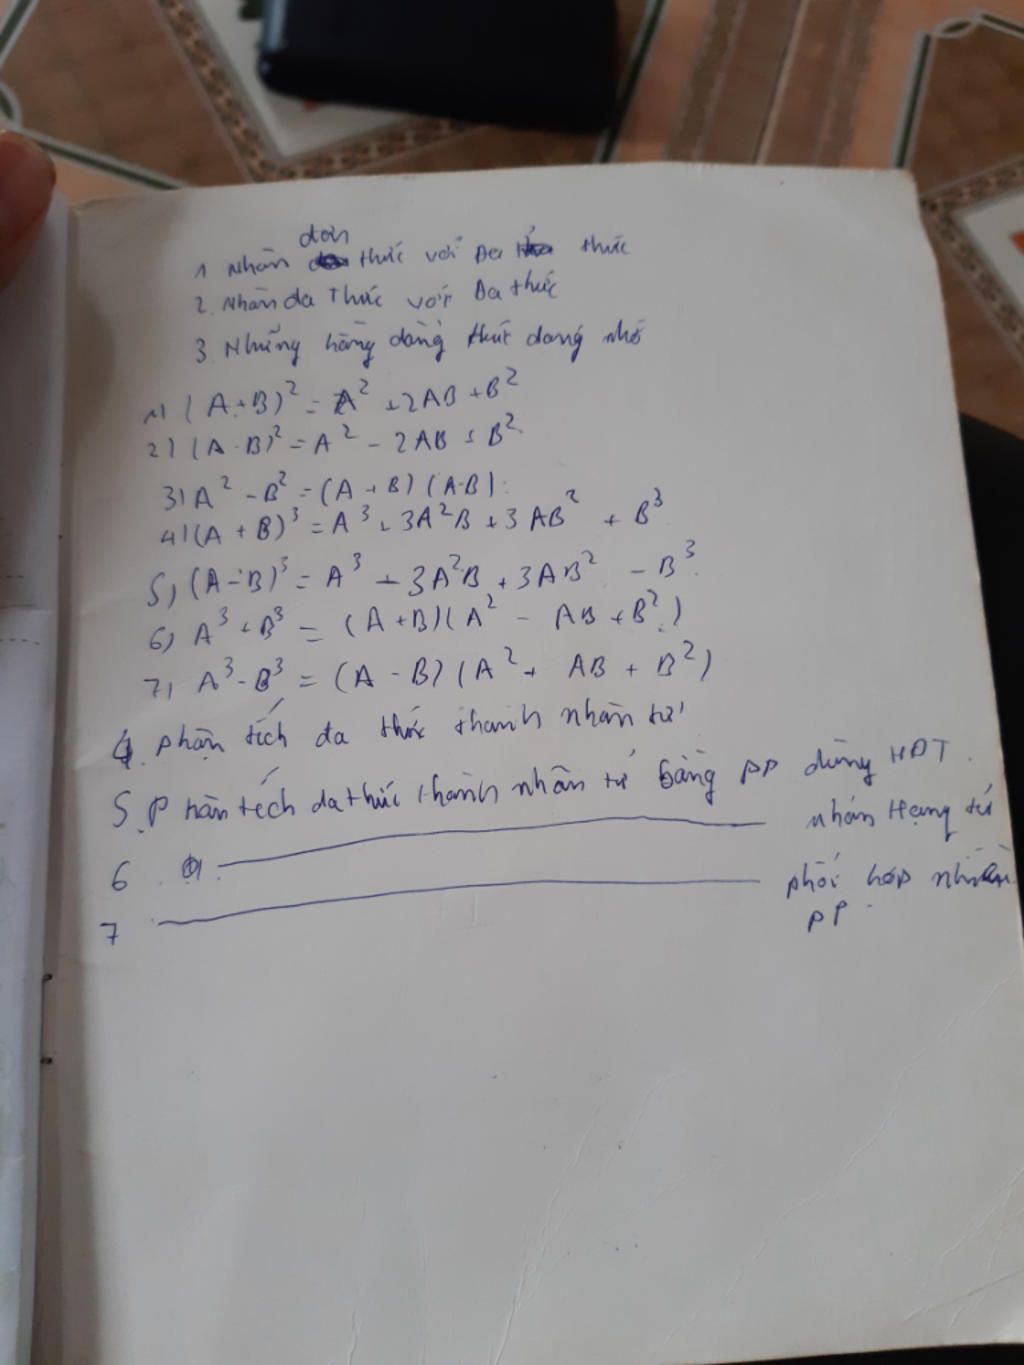 đơn
1 Nhân thức với Đa thức
2. Nhân đa Thức với Đa thức
3. Những hằng đẳng thức đáng nhớ
1) (A+B)² = A² + 2AB + B²
2) (A-B)² = A² - 2AB + B²
3) A² - B² = (A + B) (A-B)
4) (A + B)³ = A³ + 3A²B + 3AB² + B³
5) (A-B)³ = A³ - 3A²B + 3AB² - B³
6) A³ + B³ = (A+B)(A² - AB + B²)
7) A³ - B³ = (A - B) (A² + AB + B²)
4. phân tích đa thức thanh nhân tử
5. Phân tích đa thức thành nhân tử bằng PP dùng HĐT.
6 nhóm Hạng tử
7 phối hợp nhiều
PP.